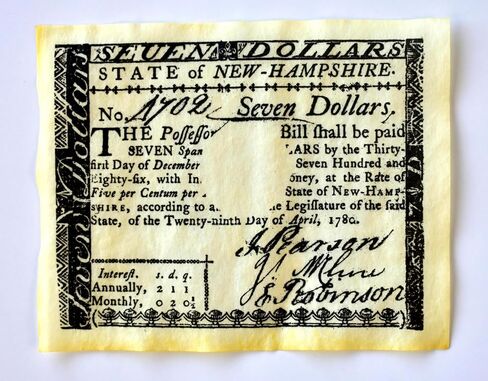 SEVEN DOLLARS
STATE of NEW-HAMPSHIRE.
No. 1702 Seven Dollars,
THE Possessor Bill shall be paid
SEVEN Span LARS by the Thirty-
first Day of December Seven Hundred and
Eighty-six, with In oney, at the Rate of
Five per Centum per State of NEW-HAMP-
SHIRE, according to a he Legislature of the said
State, of the Twenty-ninth Day of April, 1780.
J Pearson
Interest. s. d. q.
Annually, 2 1 1
Monthly, 0 2 0½
J Robinson
Seven Dollars